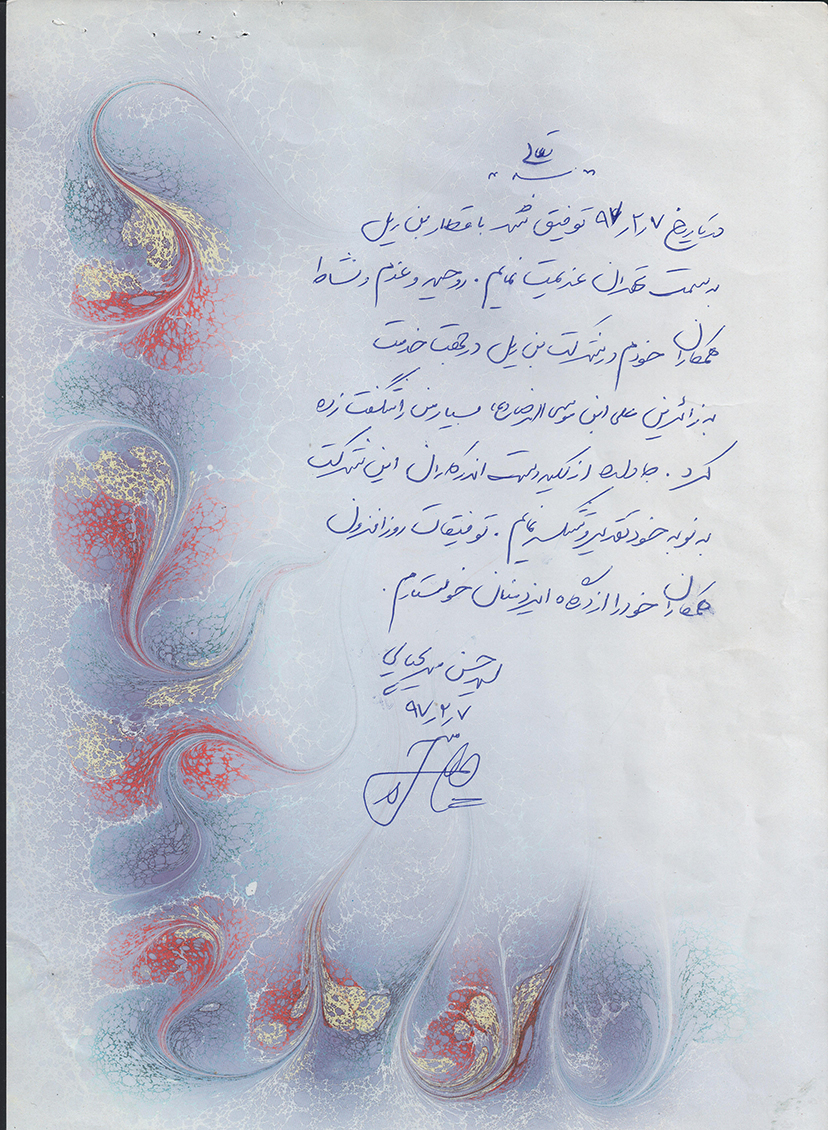 بسمه تعالی
در تاریخ ۹۷٫۲٫۷ توفیق شد با قطار بن ریل
به سمت تهران عزیمت نمایم. روحیه و عزم و نشاط
همکاران خودم در شرکت بن ریل در جهت خدمت
به زائرین علی ابن موسی الرضا (ع) بسیار من را شگفت زده
کرد. جا دارد از کلیه دست اندرکاران این شرکت
به نوبه خود تقدیر و تشکر نمایم. توفیقات روزافزون
همکاران خود را از درگاه ایزد منان خواستارم.
سید حسن
۹۷٫۲٫۷